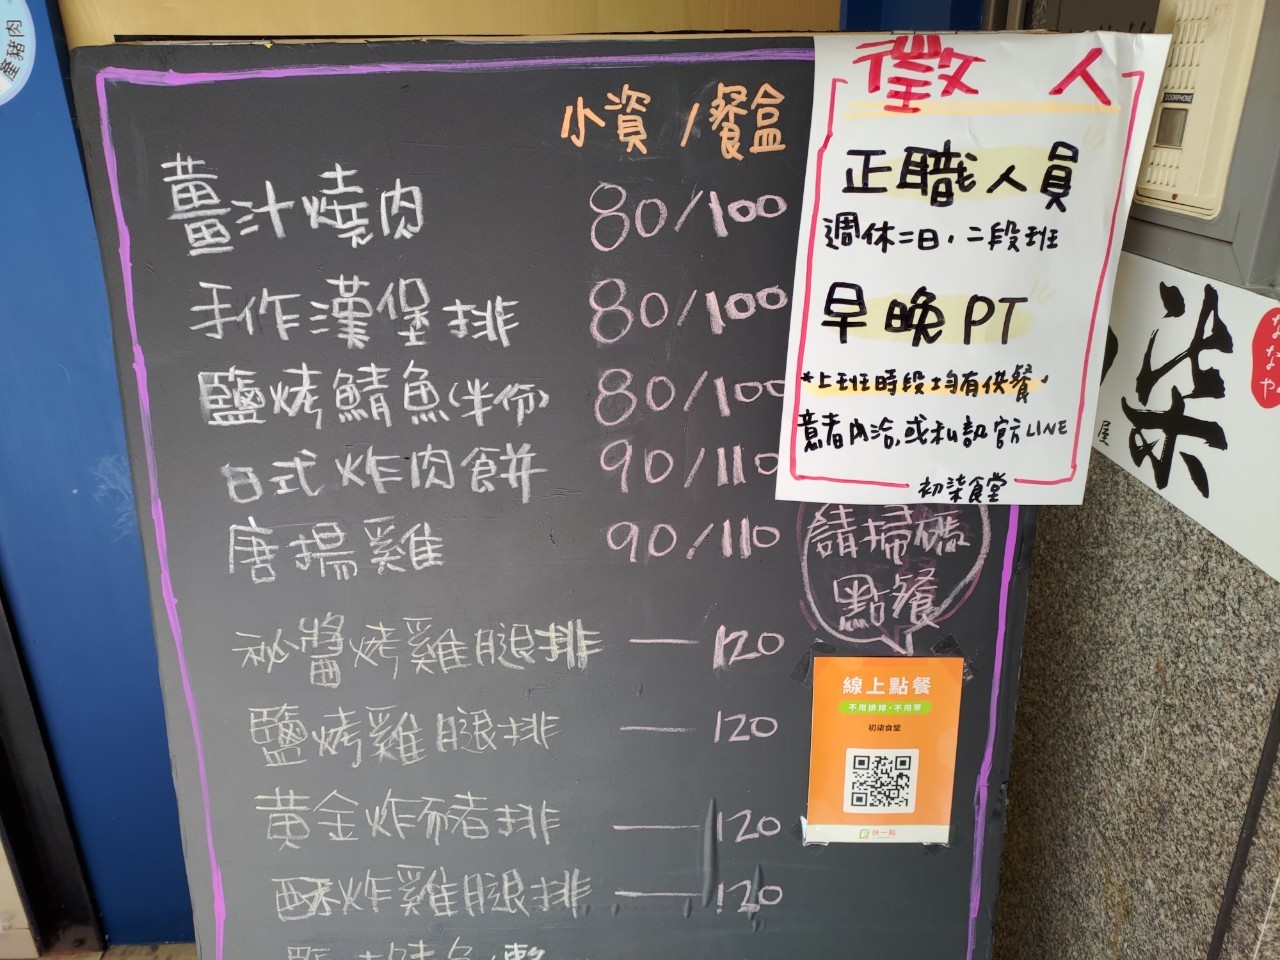 產豬肉
小資/餐盒
薑汁燒肉 80/100
手作漢堡排 80/100
鹽烤鯖魚(半份) 80/100
日式炸肉餅 90/110
唐揚雞 90/110
祕醬烤雞腿排 — 120
鹽烤雞腿排 — 120
黃金炸豬排 — 120
酥炸雞腿排 — 120
徵人
正職人員
週休二日,二段班
早晚PT
*上班時段均有供餐
意者內洽,或私訊官方LINE
初柒食堂
請掃碼
點餐
線上點餐
不用排隊·不用等
初柒食堂
快一點
DOORPHONE
柒
屋